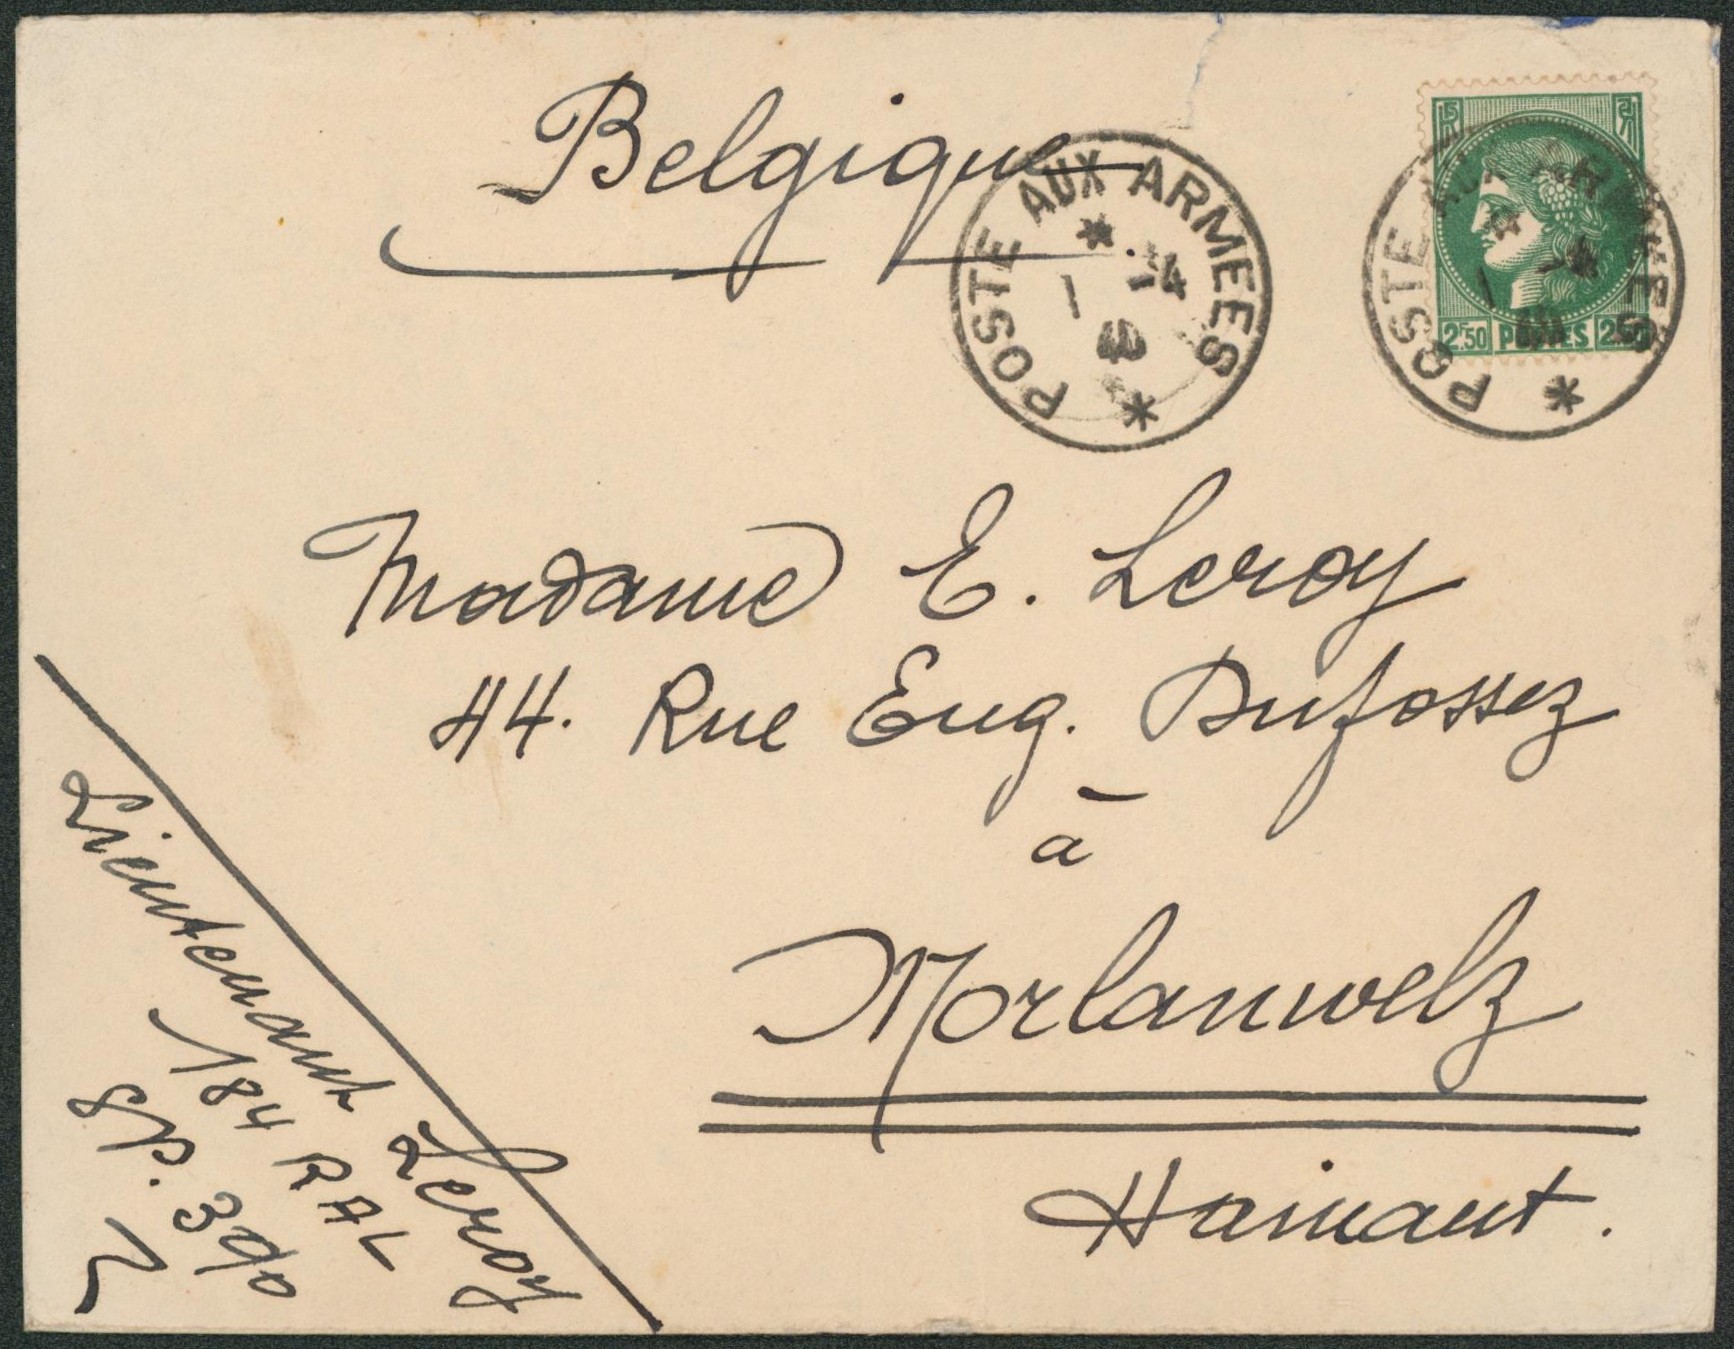 Belgique
POSTE AUX ARMEES
* 1 -4 40 *
2F50 POSTES 2F50
POSTE AUX ARMEES
* 1 -4 *
Madame E. Leroy
44. Rue Eug. Dufossez
à
Morlanwelz
Hainaut.
Lieutenant Leroy
184 RAL
SP. 390